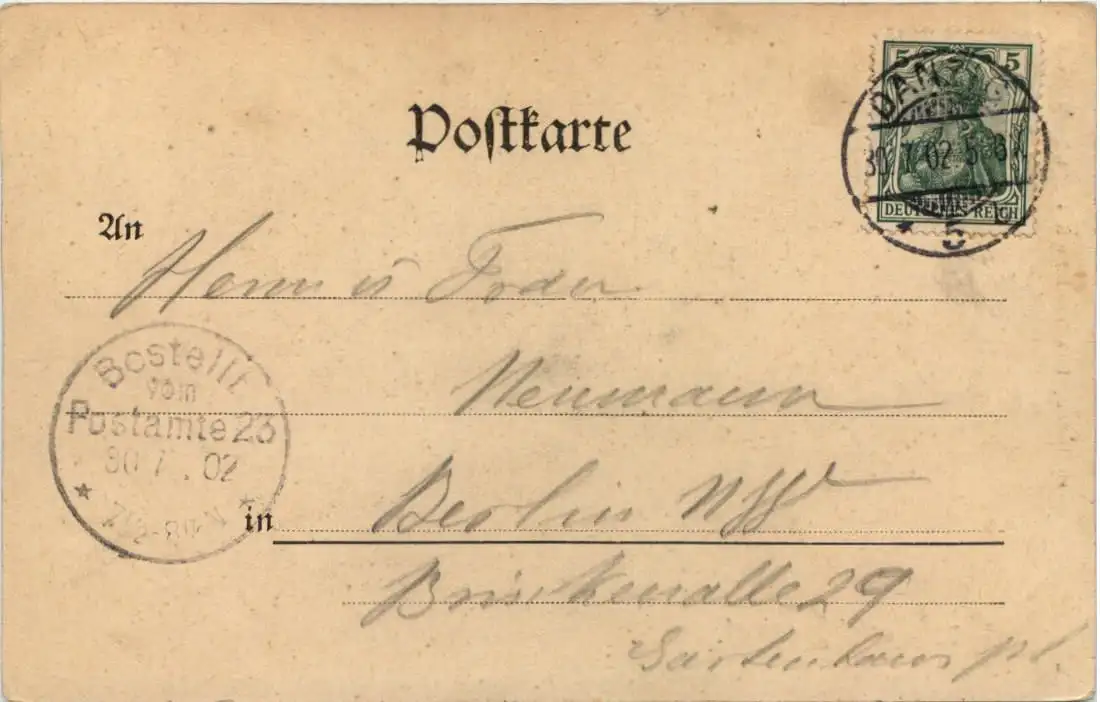 5 5
DANZIG
30.7.02.5-6
DEUTSCHES REICH
* 5
Postkarte
An
Herrn
Neumann
Bestellt
vom
Postamte 23
30 7 . 02
in
Berlin NW
Brückenallee 29
Gartenhaus pt.